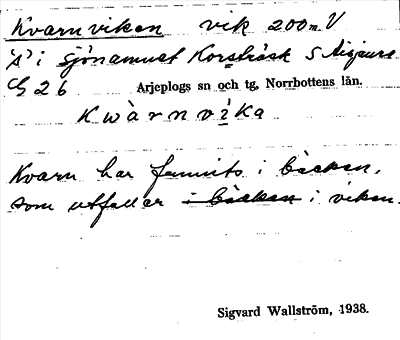 Kvarnviken vik 200 m V
"s" i sjönamnet Korsträsk S Aisjaure
G 26 Arjeplogs sn och tg, Norrbottens län.
Kwàrnvìka
Kvarn har funnits i bäcken,
som utfaller i bäcken i viken.
Sigvard Wallström, 1938.